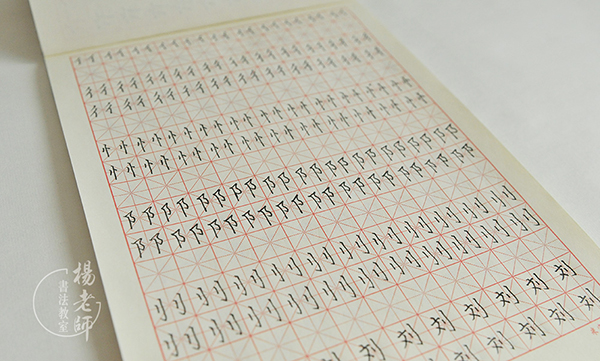 彳彳彳彳彳彳彳彳彳彳彳彳彳彳彳彳
彳彳彳彳彳彳彳彳彳彳彳彳彳彳彳彳
忄忄忄忄忄忄忄忄忄忄忄忄忄忄忄忄
忄忄忄忄忄忄忄忄忄忄忄忄忄忄忄忄
阝阝阝阝阝阝阝阝阝阝阝阝阝阝阝阝
阝阝阝阝阝阝阝阝阝阝阝阝阝阝阝阝
刂刂刂刂刂刂刂刂刂刂刂刂刂刂
刂刂刂刂刂刂刂刂刂刂刂刂刂刂
刘刘刘刘刘
刘刘刘刘刘刘刘
楊老師
書法教室